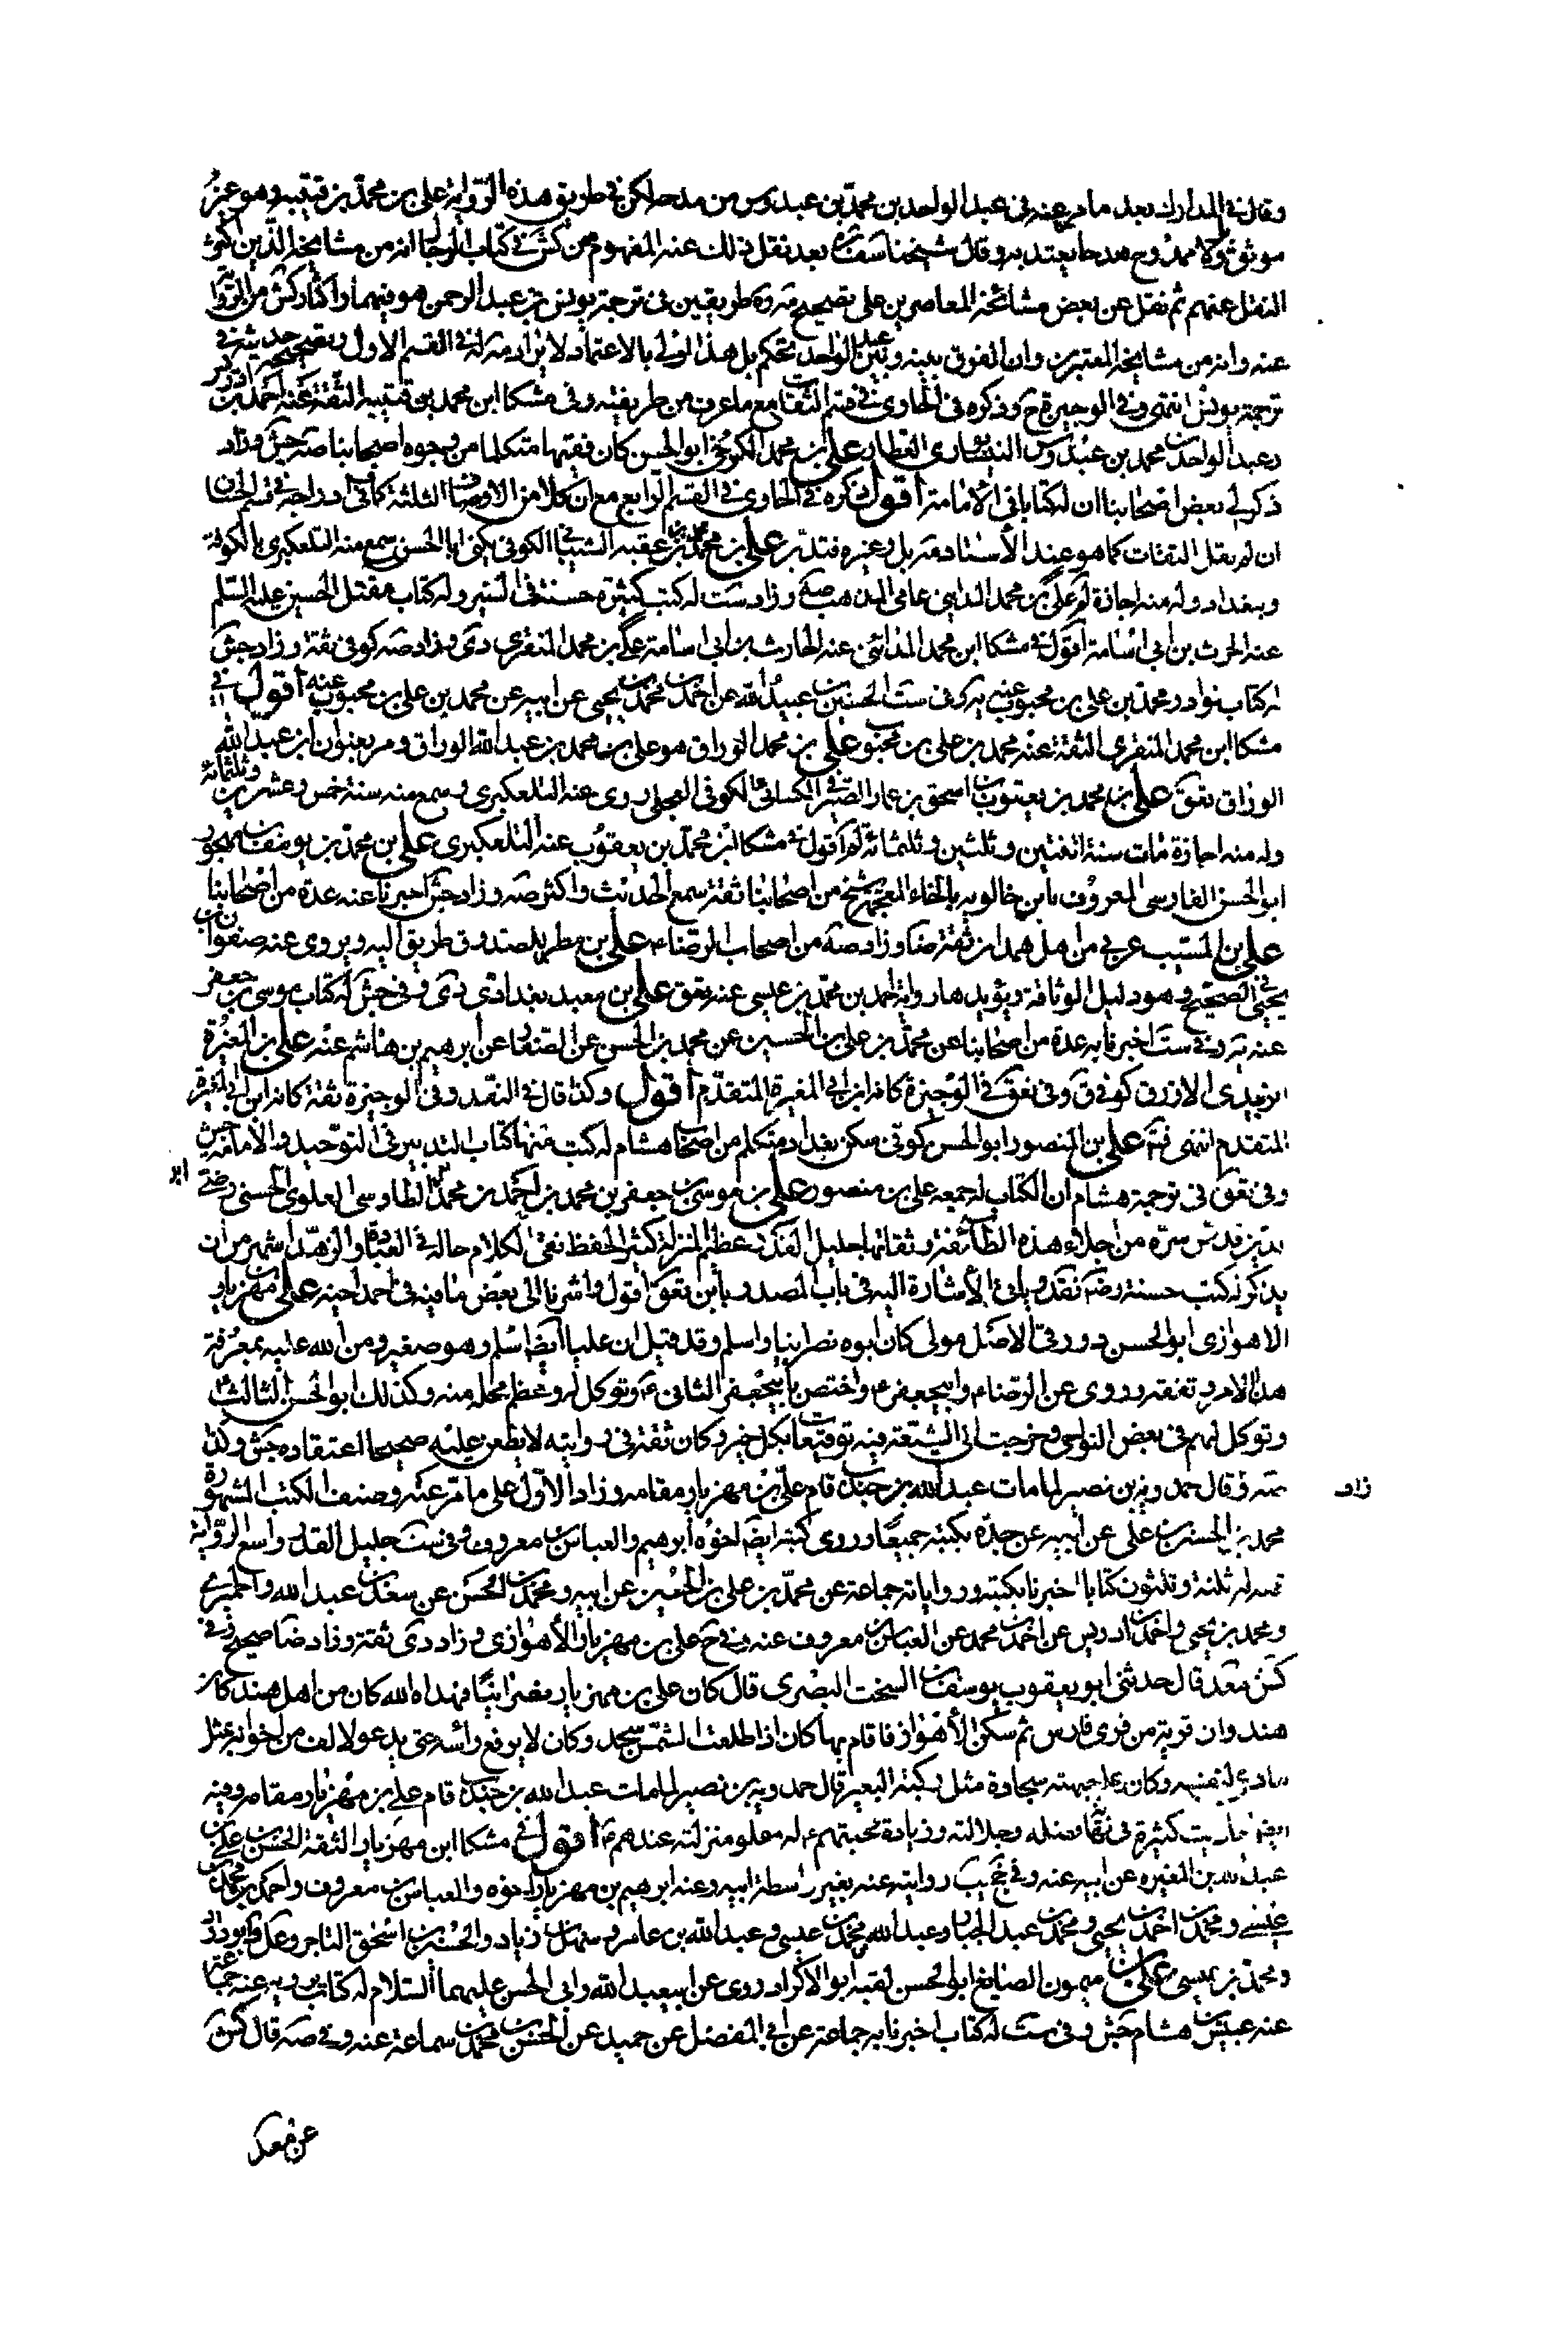 وقال في المدارك بعد ما مر عنه في عبد الواحد بن محمد بن عبدوس من مدحه لكن في طريق هذه الرواية علي بن محمد بن قتيبة وهو غير
موثق ولا ممدوح مدحا يعتد به وقال شيخنا بعد نقل ذلك عنه المفهوم من كش في كتاب الرجال انه من مشايخه الذين اكثر
النقل عنهم ثم نقل عن بعض مشايخه المعاصرين على تصحيح مة ره طريقين في ترجمة يونس بن عبد الرحمن هو فيهما واكثار كش من الرواية
عنه وانه من مشايخه المعتبرين وان الفرق بينه وبين عبد الواحد تحكم بل هذا اولى بالاعتماد لايراد مة له في القسم الاول وتصحيحه حديثه في
ترجمة يونس انتهى وفي الوجيزة ح وذكره في الحاوي في قسم الثقات مع ما عرف من طريقته وفي مشكا ابن محمد بن قتيبة الثقة عنه احمد بن ادريس
وعبد الواحد بن محمد بن عبدوس النيسابوري العطار علي بن محمد الكرخي ابو الحسن كان فقيها متكلما من وجوه اصحابنا صه جش وزاد
ذكر لي بعض اصحابنا ان له كتابا في الامامة اقول ذكره في الحاوي في القسم الرابع مع ان كلا من الاوصاف الثلثة كاف في ادراجه في قسم الحسان
ان لم نقل الثقات كما هو عند الاستاد مة بل وغيره فتدبر علي بن محمد بن محمد بن عقبة الشيباني الكوفي يكنى ابا الحسن سمع منه التلعكبري بالكوفة
وببغداد وله منه اجازة لم علي بن محمد المدايني عامي المذهب صه وزاد ست له كتب كثيرة حسنة في السير وله كتاب مقتل الحسين عليه السلم
عنه الحرث بن ابي اسامة اقول في مشكا ابن محمد المدائني عنه الحارث بن ابي اسامة علي بن محمد المنقري دي وزاد صه كوفي ثقة وزاد جش
له كتاب نوادر محمد بن علي بن محبوب عنه به وفي ست الحسين بن عبيد الله عن احمد بن محمد بن يحيى عن ابيه عن محمد بن علي بن محبوب عنه اقول في
مشكا ابن محمد المنقري الثقة عنه محمد بن علي بن محبوب علي بن محمد الوراق هو علي بن محمد بن عبد الله الوراق ومر بعنوان ابن عبد الله
الوراق تعق علي بن محمد بن يعقوب بن اسحق بن عمار الصيرفي الكسائي الكوفي العجلي روى عنه التلعكبري وسمع منه سنة خمس وعشرين وثلثمائة
وله منه اجازة مات سنة اثنتين وثلثين وثلثمائة لم اقول في مشكا ابن محمد بن يعقوب عنه التلعكبري علي بن محمد بن يوسف بن مهجور
ابو الحسن الفارسي المعروف بابن خالويه بالخاء المعجمة شيخ من اصحابنا ثقة سمع الحديث واكثر صه وزاد جش اخبرنا عنه عدة من اصحابنا
علي بن المسيب عربي من اهل همدان ثقة ضا وزاد صه من اصحاب الرضا ع علي بن مطر للصدوق طريق اليه ويروي عنه صفوان بن
يحيى في الصحيح وهو دليل الوثاقة ويؤيدها رواية احمد بن محمد بن عيسى عنه تعق علي بن معبد بغدادي دي وفي جش له كتاب موسى بن جعفر
عنه به وفي ست اخبرنا به عدة من اصحابنا عن محمد بن علي بن الحسين عن محمد بن الحسن عن الصفار عن ابرهيم بن هاشم عنه علي بن المغيرة
الزبيدي الازرق كوفي ق وفي تعق في الوجيزة كانه ابن ابي المغيرة المتقدم اقول وكذا قال في النقد وفي الوجيزة ثقة كانه ابن ابي المغيرة
المتقدم انتهى فتم علي بن المنصور ابو الحسن كوفي سكن بغداد متكلم من اصحاب هشام له كتب منها كتاب التدبير في التوحيد والامامة جش
وفي تعق في ترجمة هشام ان الكتاب له جمعه علي بن منصور علي بن موسى بن جعفر بن محمد بن احمد بن محمد الطاوسي العلوي الحسني رضي
الدين قدس سره من اجلاء هذه الطائفة وثقاتها جليل القدر عظيم المنزلة كثير الحفظ نقي الكلام حاله في العبادة والزهد اشهر من ان
يذكر له كتب حسنة رضه نقد وياتي الاشارة اليه في باب المصدر بابن تعق اقول واشرنا الى بعض ما فيه في احمد اخيه علي بن مهزيار
الاهوازي ابو الحسن دورقي الاصل مولى كان ابوه نصرانيا واسلم وقد قيل ان عليا ايضا اسلم وهو صغير ومن الله عليه بمعرفة
هذا الامر وتفقه وروى عن الرضا ع وابي جعفر ع واختص بابي جعفر الثاني ع وتوكل له وعظم محله منه وكذلك ابو الحسن الثالث ع
وتوكل لهم في بعض النواحي وخرجت الى الشيعة فيه توقيعات بكل خير وكان ثقة في روايته لا يطعن عليه صحيحا اعتقاده جش وكذا
صه وقال حمدويه بن نصير لما مات عبد الله بن جندب قام علي بن مهزيار مقامه وزاد الاول على ما مر عنه وصنف الكتب المشهورة
زاد
محمد بن الحسن بن علي عن ابيه عن جده بكتبه جميعا وروى كتبه ايضا اخوه ابرهيم والعباس بن معروف وفي ست جليل القدر واسع الرواية
ثقة له ثلثة وثلثون كتابا اخبرنا بكتبه ورواياته جماعة عن محمد بن علي بن الحسين عن ابيه ومحمد بن الحسن عن سعد بن عبد الله والحميري
ومحمد بن يحيى واحمد بن ادريس عن احمد بن محمد عن العباس بن معروف عنه وفي ج علي بن مهزيار الاهوازي وزاد دي ثقة وزاد ضا صحيح وفي
كش محمد قال حدثني ابو يعقوب يوسف بن السخت البصري قال كان علي بن مهزيار نصرانيا فهداه الله كان من اهل هند كان
هندوان قرية من قرى فارس ثم سكن الاهواز فاقام بها كان اذا طلعت الشمس سجد وكان لا يرفع راسه حتى يدعو لالف من اخوانه بمثل
ما دعا لنفسه وكان على جبهته سجادة مثل ركبة البعير قال حمدويه بن نصير لما مات عبد الله بن جندب قام علي بن مهزيار مقامه وفيه
ايضا احاديث كثيرة في فضله وجلالته وزيادة محبتهم ع له وعلو منزلته عندهم ع اقول في مشكا ابن مهزيار الثقة الحسن بن علي بن
عبد الله بن المغيره عن ابيه عنه وفي روايته عنه بغير واسطة ابيه وعنه ابرهيم بن مهزيار اخوه والعباس بن معروف واحمد بن محمد بن
عيسى ومحمد بن احمد بن يحيى ومحمد بن عبد الجبار وعبد الله بن محمد بن عيسى وعبد الله بن عامر وسهل بن زياد والحسين بن اسحق التاجر
ومحمد بن عيسى علي بن ميمون الصايغ ابو الحسن لقبه ابو الاكراد روى عن ابي عبد الله وابي الحسن عليهما السلام له كتاب يرويه عنه جماعة
عنه عبيس بن هشام جش وفي ست له كتاب اخبرنا به جماعة عن ابي المفضل عن حميد عن الحسن بن محمد بن سماعة عنه وفي صه قال كش
عن محمد